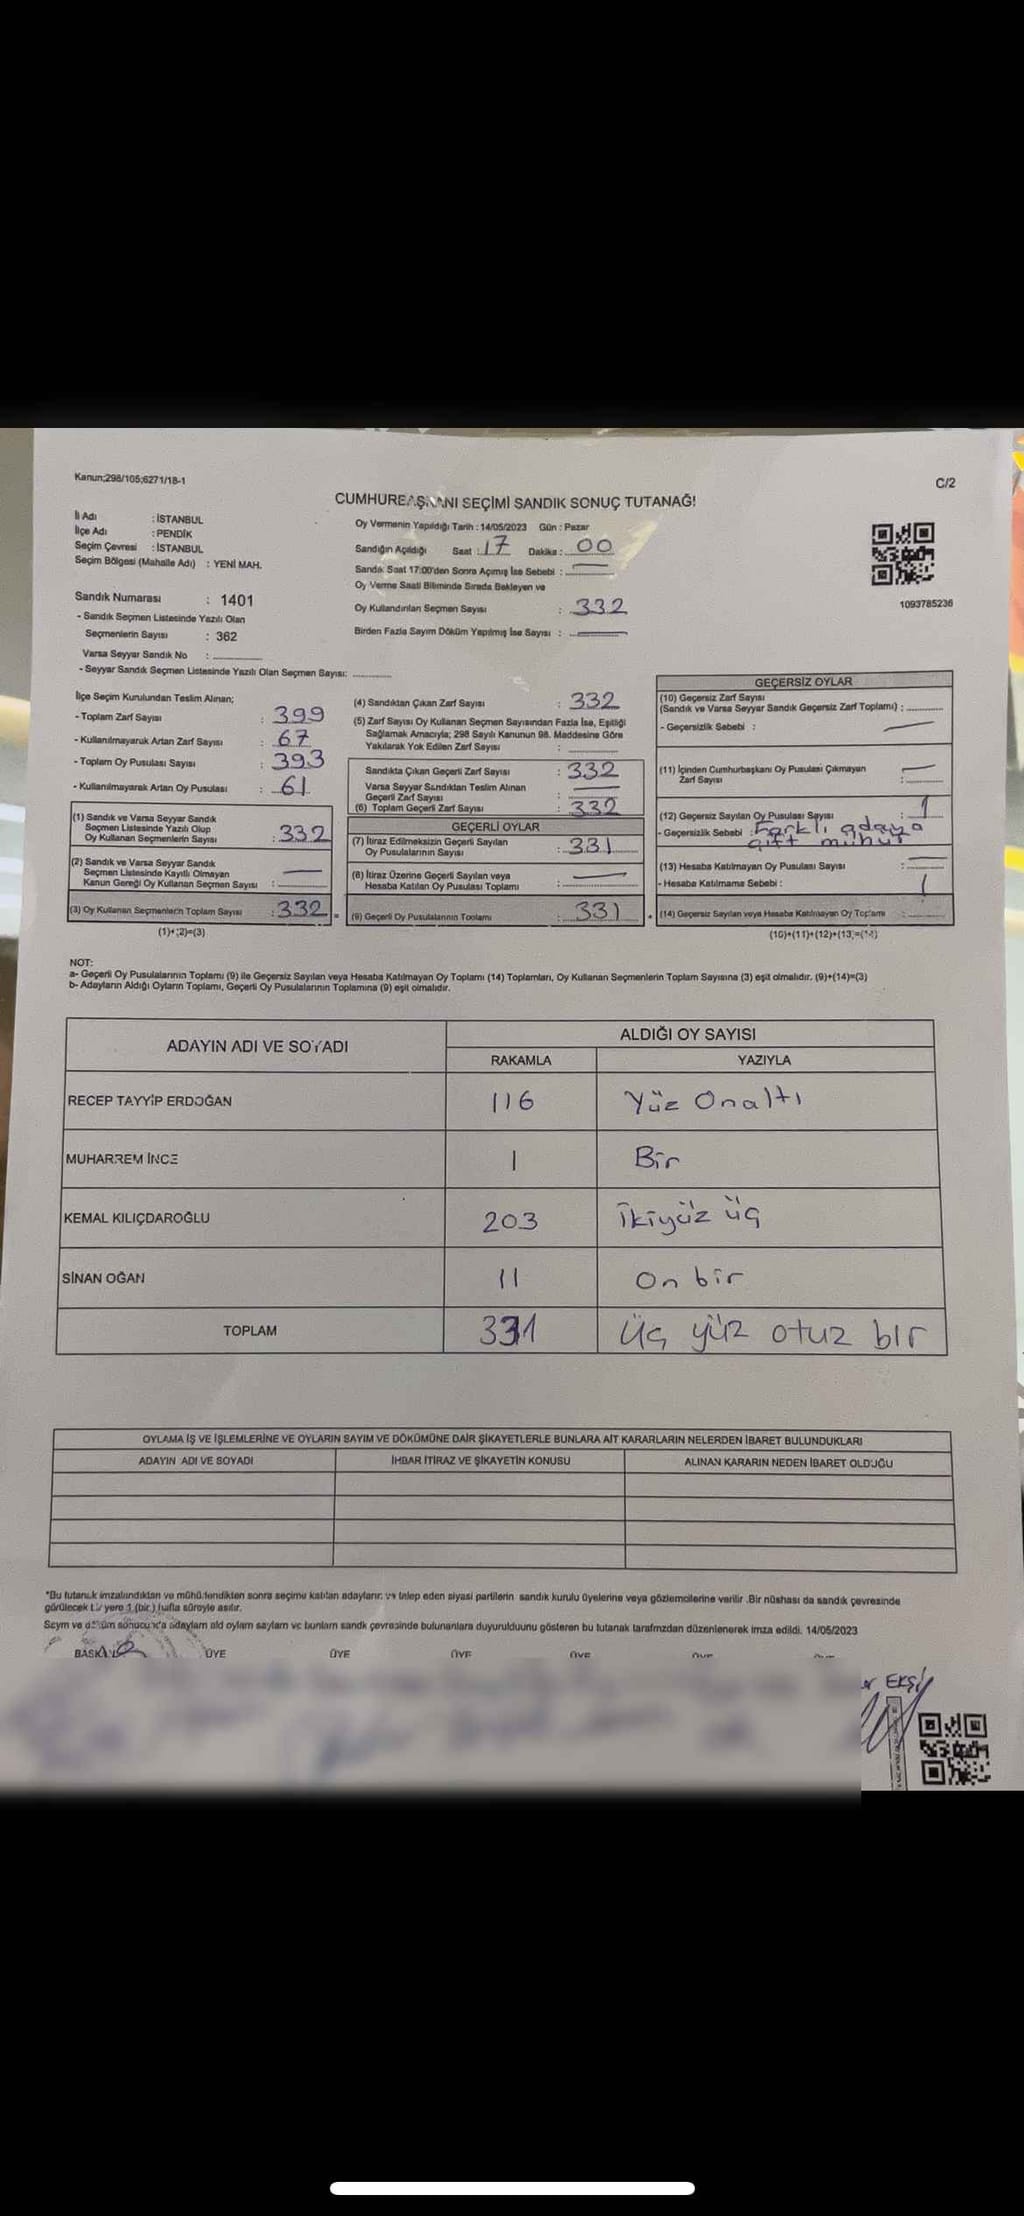 Kanun;298/105;6271/18-1
C/2
CUMHURBAŞKANI SEÇİMİ SANDIK SONUÇ TUTANAĞI
İl Adı : İSTANBUL
İlçe Adı : PENDİK
Seçim Çevresi : İSTANBUL
Seçim Bölgesi (Mahalle Adı) : YENİ MAH.
Sandık Numarası : 1401
- Sandık Seçmen Listesinde Yazılı Olan
Seçmenlerin Sayısı : 362
Varsa Seyyar Sandık No :
- Seyyar Sandık Seçmen Listesinde Yazılı Olan Seçmen Sayısı:
Oy Vermenin Yapıldığı Tarih : 14/05/2023 Gün : Pazar
Sandığın Açıldığı Saat : 17 Dakika : 00
Sandık Saat 17:00'den Sonra Açımış İse Sebebi :
Oy Verme Saati Bitiminde Sırada Bekleyen ve
Oy Kullandırılan Seçmen Sayısı : 332
Birden Fazla Sayım Döküm Yapılmış İse Sayısı :
1093785236
İlçe Seçim Kurulundan Teslim Alınan;
- Toplam Zarf Sayısı : 399
- Kullanılmayarak Artan Zarf Sayısı : 67
- Toplam Oy Pusulası Sayısı : 393
- Kullanılmayarak Artan Oy Pusulası : 61
(1) Sandık ve Varsa Seyyar Sandık
Seçmen Listesinde Yazılı Olup
Oy Kullanan Seçmenlerin Sayısı : 332
(2) Sandık ve Varsa Seyyar Sandık
Seçmen Listesinde Kayıtlı Olmayan
Kanun Gereği Oy Kullanan Seçmen Sayısı :
(3) Oy Kullanan Seçmenlerin Toplam Sayısı : 332
(1)+(2)=(3)
(4) Sandıktan Çıkan Zarf Sayısı : 332
(5) Zarf Sayısı Oy Kullanan Seçmen Sayısından Fazla İse, Eşitliği
Sağlamak Amacıyla; 298 Sayılı Kanunun 98. Maddesine Göre
Yakılarak Yok Edilen Zarf Sayısı :
Sandıkta Çıkan Geçerli Zarf Sayısı : 332
Varsa Seyyar Sandıktan Teslim Alınan
Geçerli Zarf Sayısı :
(6) Toplam Geçerli Zarf Sayısı : 332
GEÇERLİ OYLAR
(7) İtiraz Edilmeksizin Geçerli Sayılan
Oy Pusulalarının Sayısı : 331
(8) İtiraz Üzerine Geçerli Sayılan veya
Hesaba Katılan Oy Pusulası Toplamı :
(9) Geçerli Oy Pusulalarının Toplamı : 331
GEÇERSİZ OYLAR
(10) Geçersiz Zarf Sayısı
(Sandık ve Varsa Seyyar Sandık Geçersiz Zarf Toplamı) :
- Geçersizlik Sebebi :
(11) İçinden Cumhurbaşkanı Oy Pusulası Çıkmayan
Zarf Sayısı :
(12) Geçersiz Sayılan Oy Pusulası Sayısı : 1
- Geçersizlik Sebebi : Farklı adaya
çift mühür
(13) Hesaba Katılmayan Oy Pusulası Sayısı :
- Hesaba Katılmama Sebebi :
(14) Geçersiz Sayılan veya Hesaba Katılmayan Oy Toplamı : 1
(10)+(11)+(12)+(13)=(14)
NOT:
a- Geçerli Oy Pusulalarının Toplamı (9) ile Geçersiz Sayılan veya Hesaba Katılmayan Oy Toplamı (14) Toplamları, Oy Kullanan Seçmenlerin Toplam Sayısına (3) eşit olmalıdır. (9)+(14)=(3)
b- Adayların Aldığı Oyların Toplamı, Geçerli Oy Pusulalarının Toplamına (9) eşit olmalıdır.
ADAYIN ADI VE SOYADI
ALDIĞI OY SAYISI
RAKAMLA YAZIYLA
RECEP TAYYİP ERDOĞAN 116 Yüz Onaltı
MUHARREM İNCE 1 Bir
KEMAL KILIÇDAROĞLU 203 İkiyüz üç
SİNAN OĞAN 11 On bir
TOPLAM 331 Üç yüz otuz bir
OYLAMA İŞ VE İŞLEMLERİNE VE OYLARIN SAYIM VE DÖKÜMÜNE DAİR ŞİKAYETLERLE BUNLARA AİT KARARLARIN NELERDEN İBARET BULUNDUKLARI
ADAYIN ADI VE SOYADI İHBAR İTİRAZ VE ŞİKAYETİN KONUSU ALINAN KARARIN NEDEN İBARET OLDUĞU
*Bu tutanak imzalandıktan ve mühürlendikten sonra seçime katılan adayların ve talep eden siyasi partilerin sandık kurulu üyelerine veya gözlemcilerine verilir .Bir nüshası da sandık çevresinde
görülecek bir yere 1 (bir ) hafta süreyle asılır.
Sayım ve döküm sonucunda adayların aldığı oyların sayıları ve bunların sandık çevresinde bulunanlara duyurulduğunu gösteren bu tutanak tarafımızdan düzenlenerek imza edildi. 14/05/2023
BAŞKAN ÜYE ÜYE ÜYE ÜYE
Ekşi